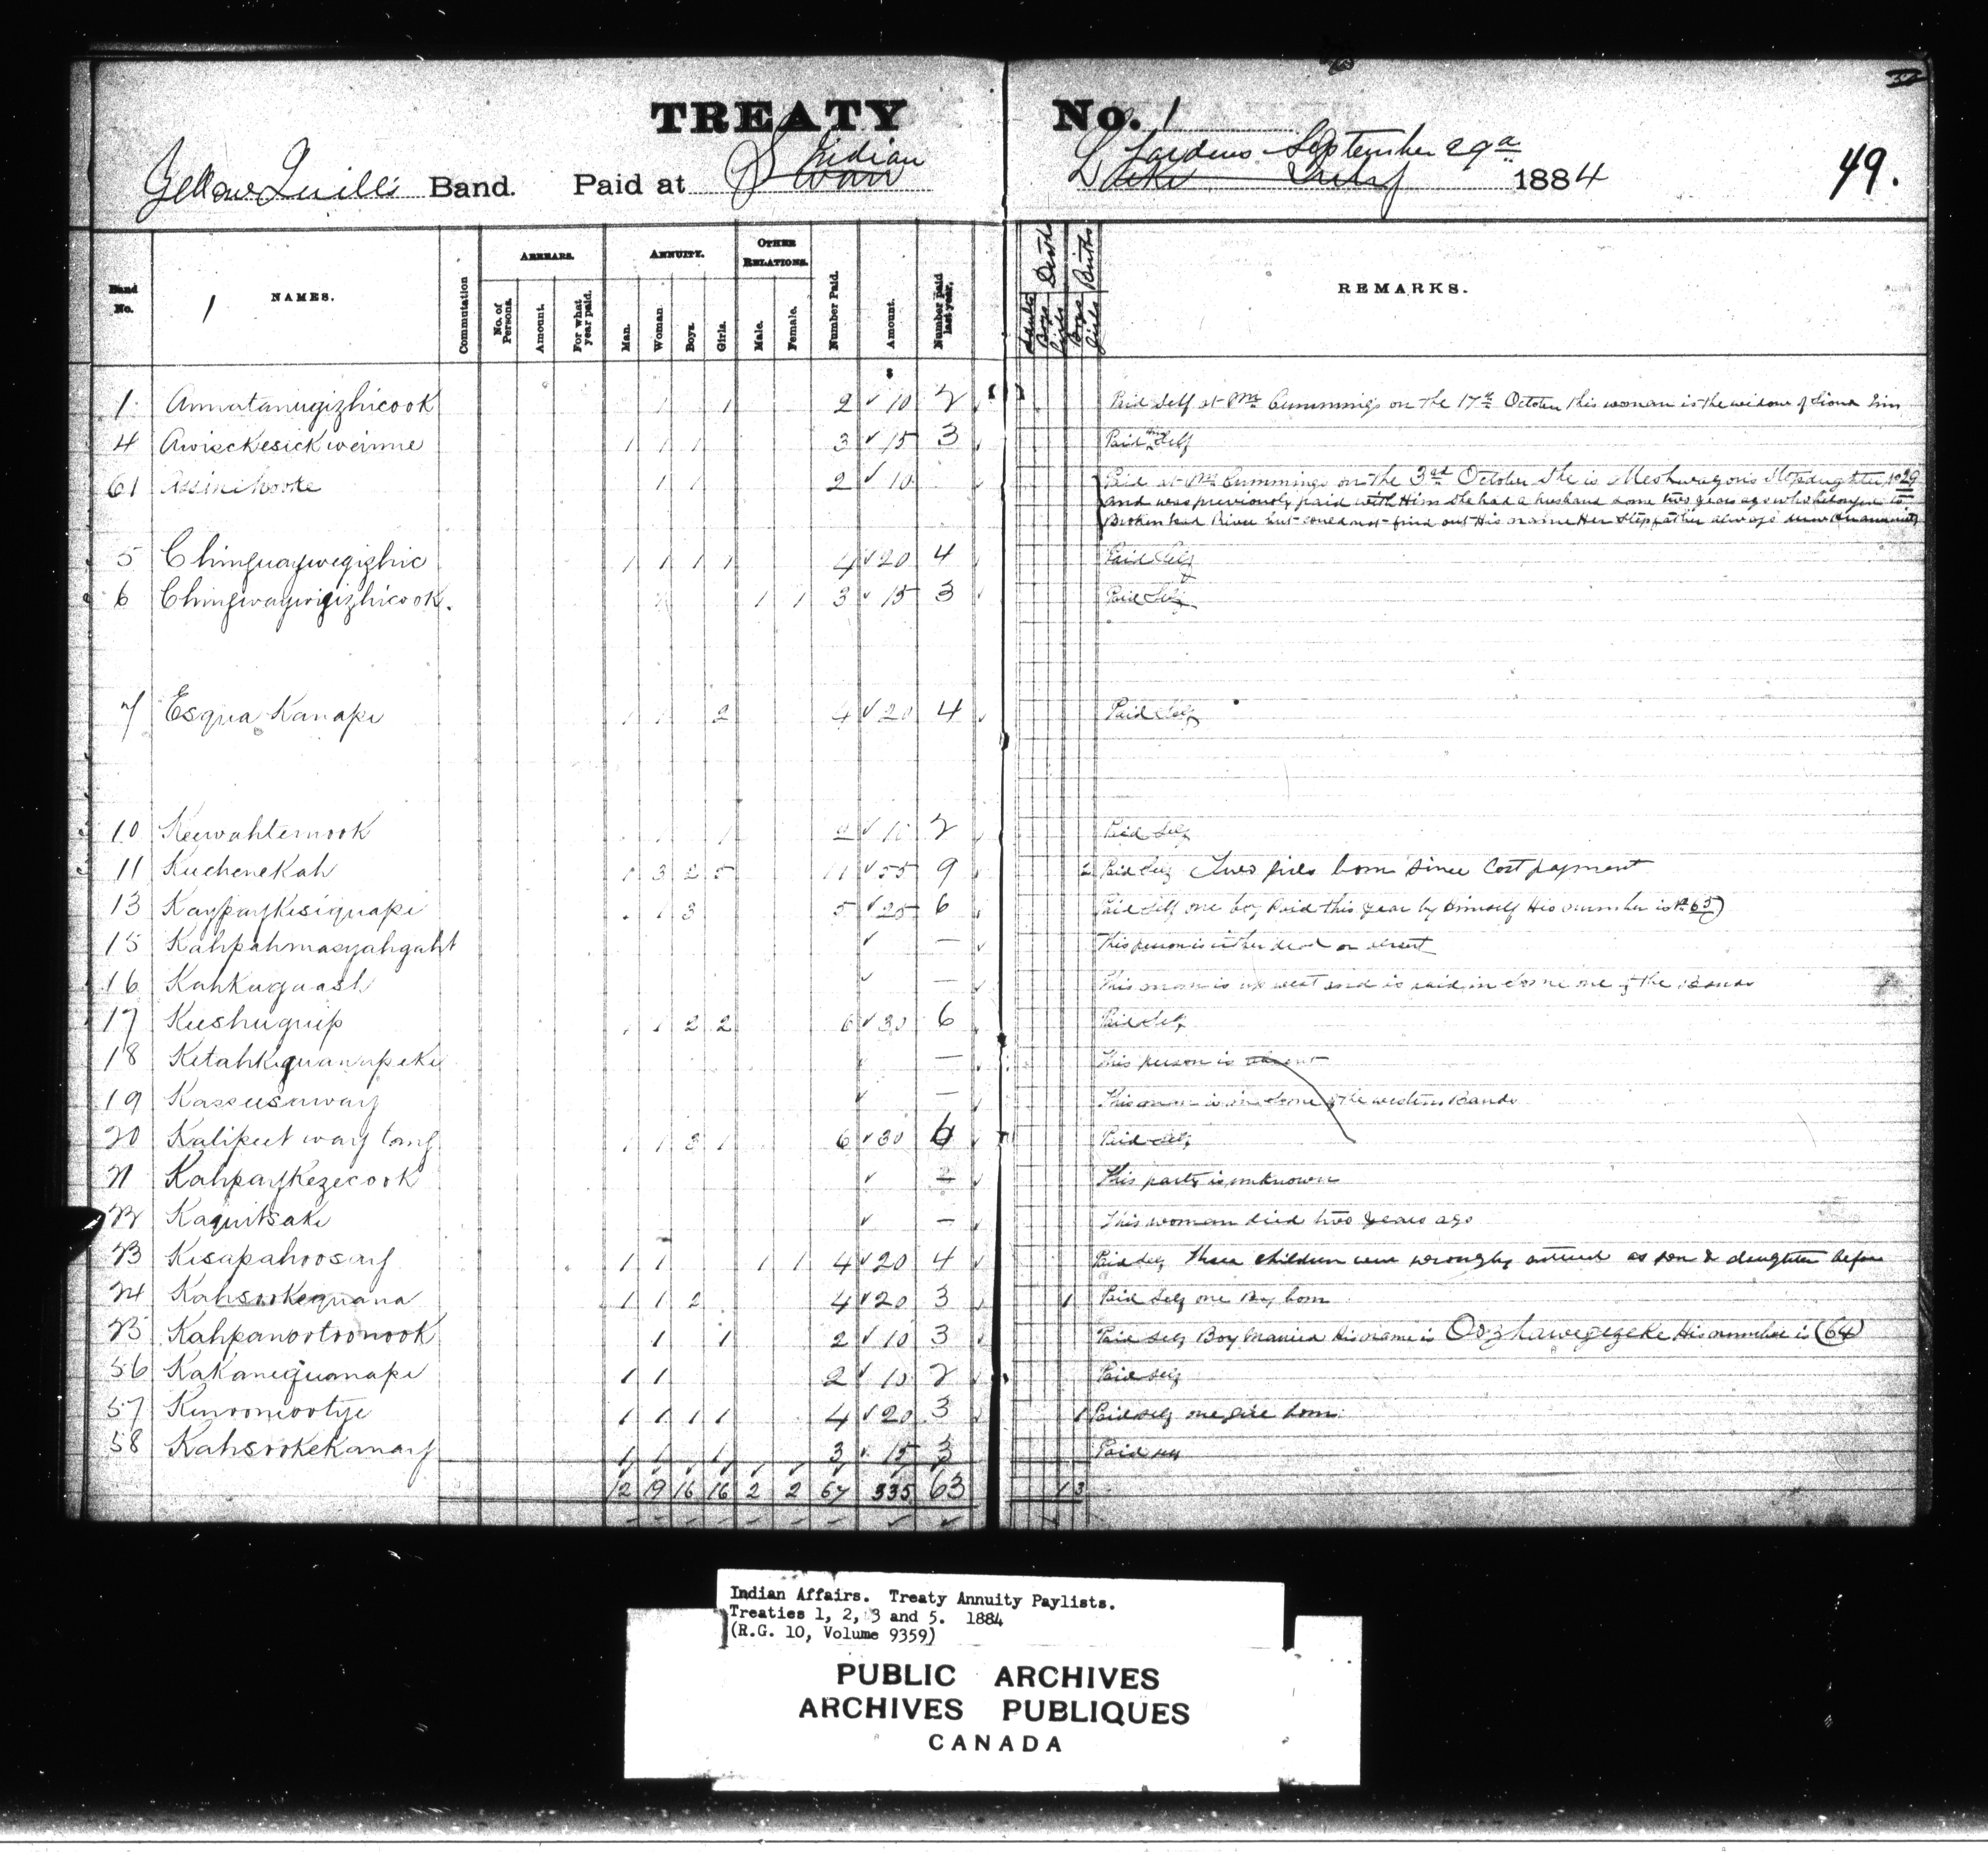 TREATY No. 1
Yellow Quill's Band. Paid at Swan Indian Lake Gardens July September 29 1884
49.
Band No. NAMES. Commutation ARREARS. No. of Persons. Amount. For what year paid. ANNUITY. Man. Woman Boys. Girls. OTHER RELATIONS. Male. Female. Number Paid. Amount. Number paid last year. Deaths Adults Boys Girls Births Boys Girls REMARKS.
1
$
1 Annatanugizhicook 1 1 2 10 2 Paid Self at Cummings on the 17th October this woman is the widow of
4 Awieckesickweinne 1 1 1 3 15 3 Paid Self
61 Assinikooke 1 1 2 10 Paid at Cummings on the 3rd October She is Stepdaughter No 29
and was previously paid with Him She had a husband some two years ago who belonged to
Broken head River but could not find out His name Her Stepfather always
5 Chinguaywegizhic 1 1 1 1 4 20 4 Paid Self
6 Chingwaywigizhicook. 1 1 1 3 15 3 Paid Self
7 Esqua Kanape 1 1 2 4 20 4 Paid Self
10 Keewahtemook 1 1 2 10 2 Paid Self
11 Kuchenekah 1 3 2 5 11 55 9 2 Paid Self Two girls born since last payment
13 Kaypaykisiguape 1 1 3 5 25 6 Paid Self one boy Paid this year by Himself His number is No 65
15 Kahpahmasyahgaht — This person is either dead or absent
16 Kahkuguash — This man is in west and is paid in some one of the Bands
17 Kushuguip 1 1 2 2 6 30 6 Paid Self
18 Ketahkguanapeke — This person is absent
19 Kassusaway — This man is in some of the western Bands
20 Kalipeet way tang 1 1 3 1 6 30 6 Paid Self
21 Kahpaykezecook 2 This party is unknown
22 Kaquitsake — This woman died two years ago
23 Kisapahoosay 1 1 1 1 4 20 4 Paid Self These children were wrongly entered as son & daughter before
24 Kahsookequana 1 1 2 4 20 3 1 Paid Self one Boy born
25 Kahpanootoonook 1 1 2 10 3 Paid Self Boy Married His name is Oozhawegezeke His number is (64)
56 Kakanequanape 1 1 2 10 2 Paid Self
57 Kinoonootye 1 1 1 1 4 20 3 1 Paid Self one girl born
58 Kahsookekanay 1 1 1 3 15 3 Paid
12 19 16 16 2 2 67 335 63 1 3
Indian Affairs. Treaty Annuity Paylists.
Treaties 1, 2, 3 and 5. 1884
(R.G. 10, Volume 9359)
PUBLIC ARCHIVES
ARCHIVES PUBLIQUES
CANADA